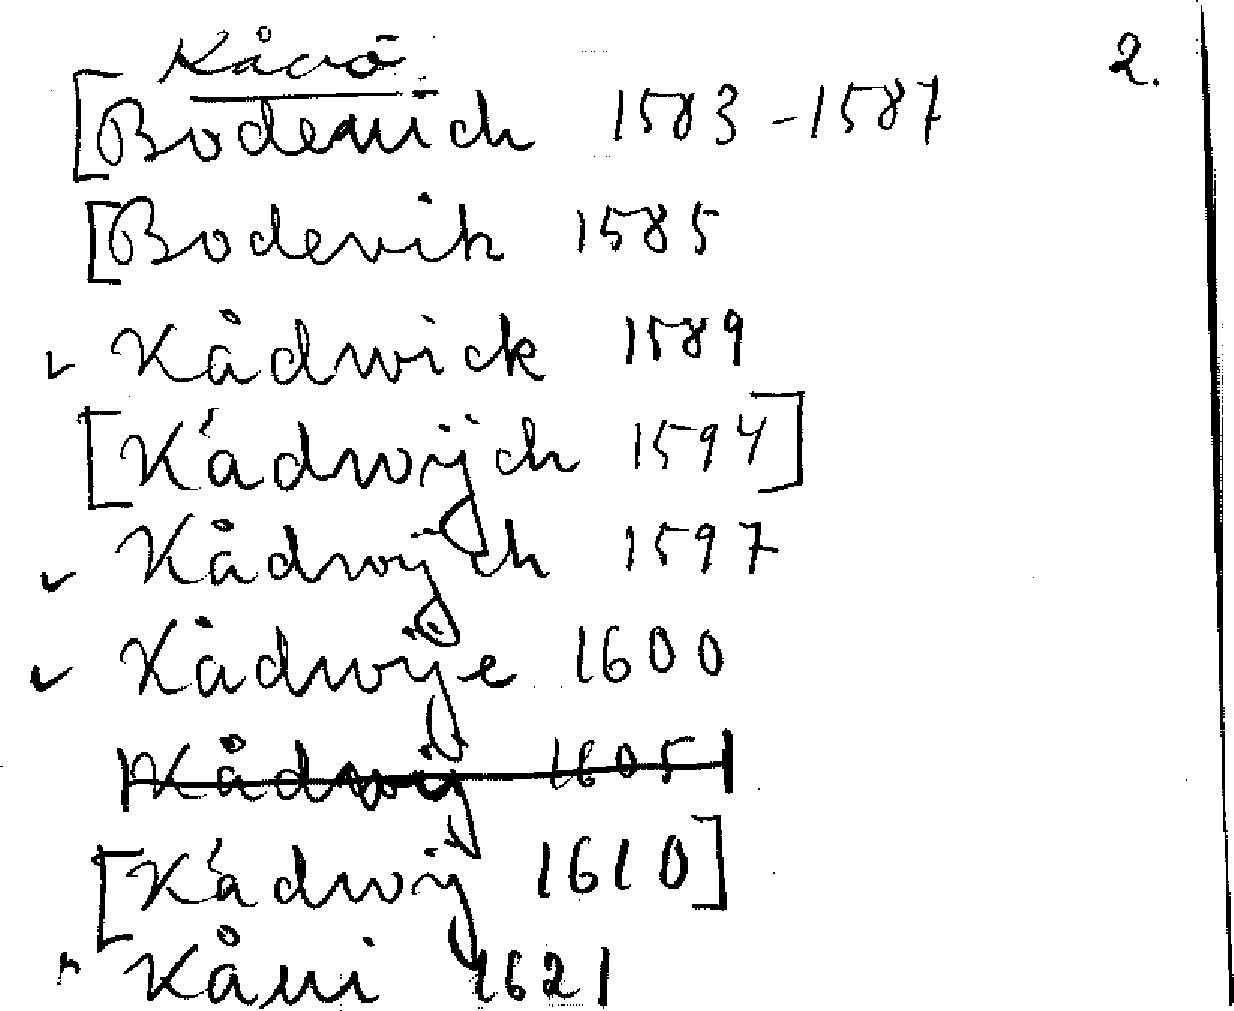 Kåvö 2.
[Bodewich 1583-1587
[Bodevik 1585
Kådwick 1589
[Kádwijch 1594]
Kådwijch 1597
Kådwije 1600
Kådwij 1605
[Kádwij 1610]
Kåui 1621